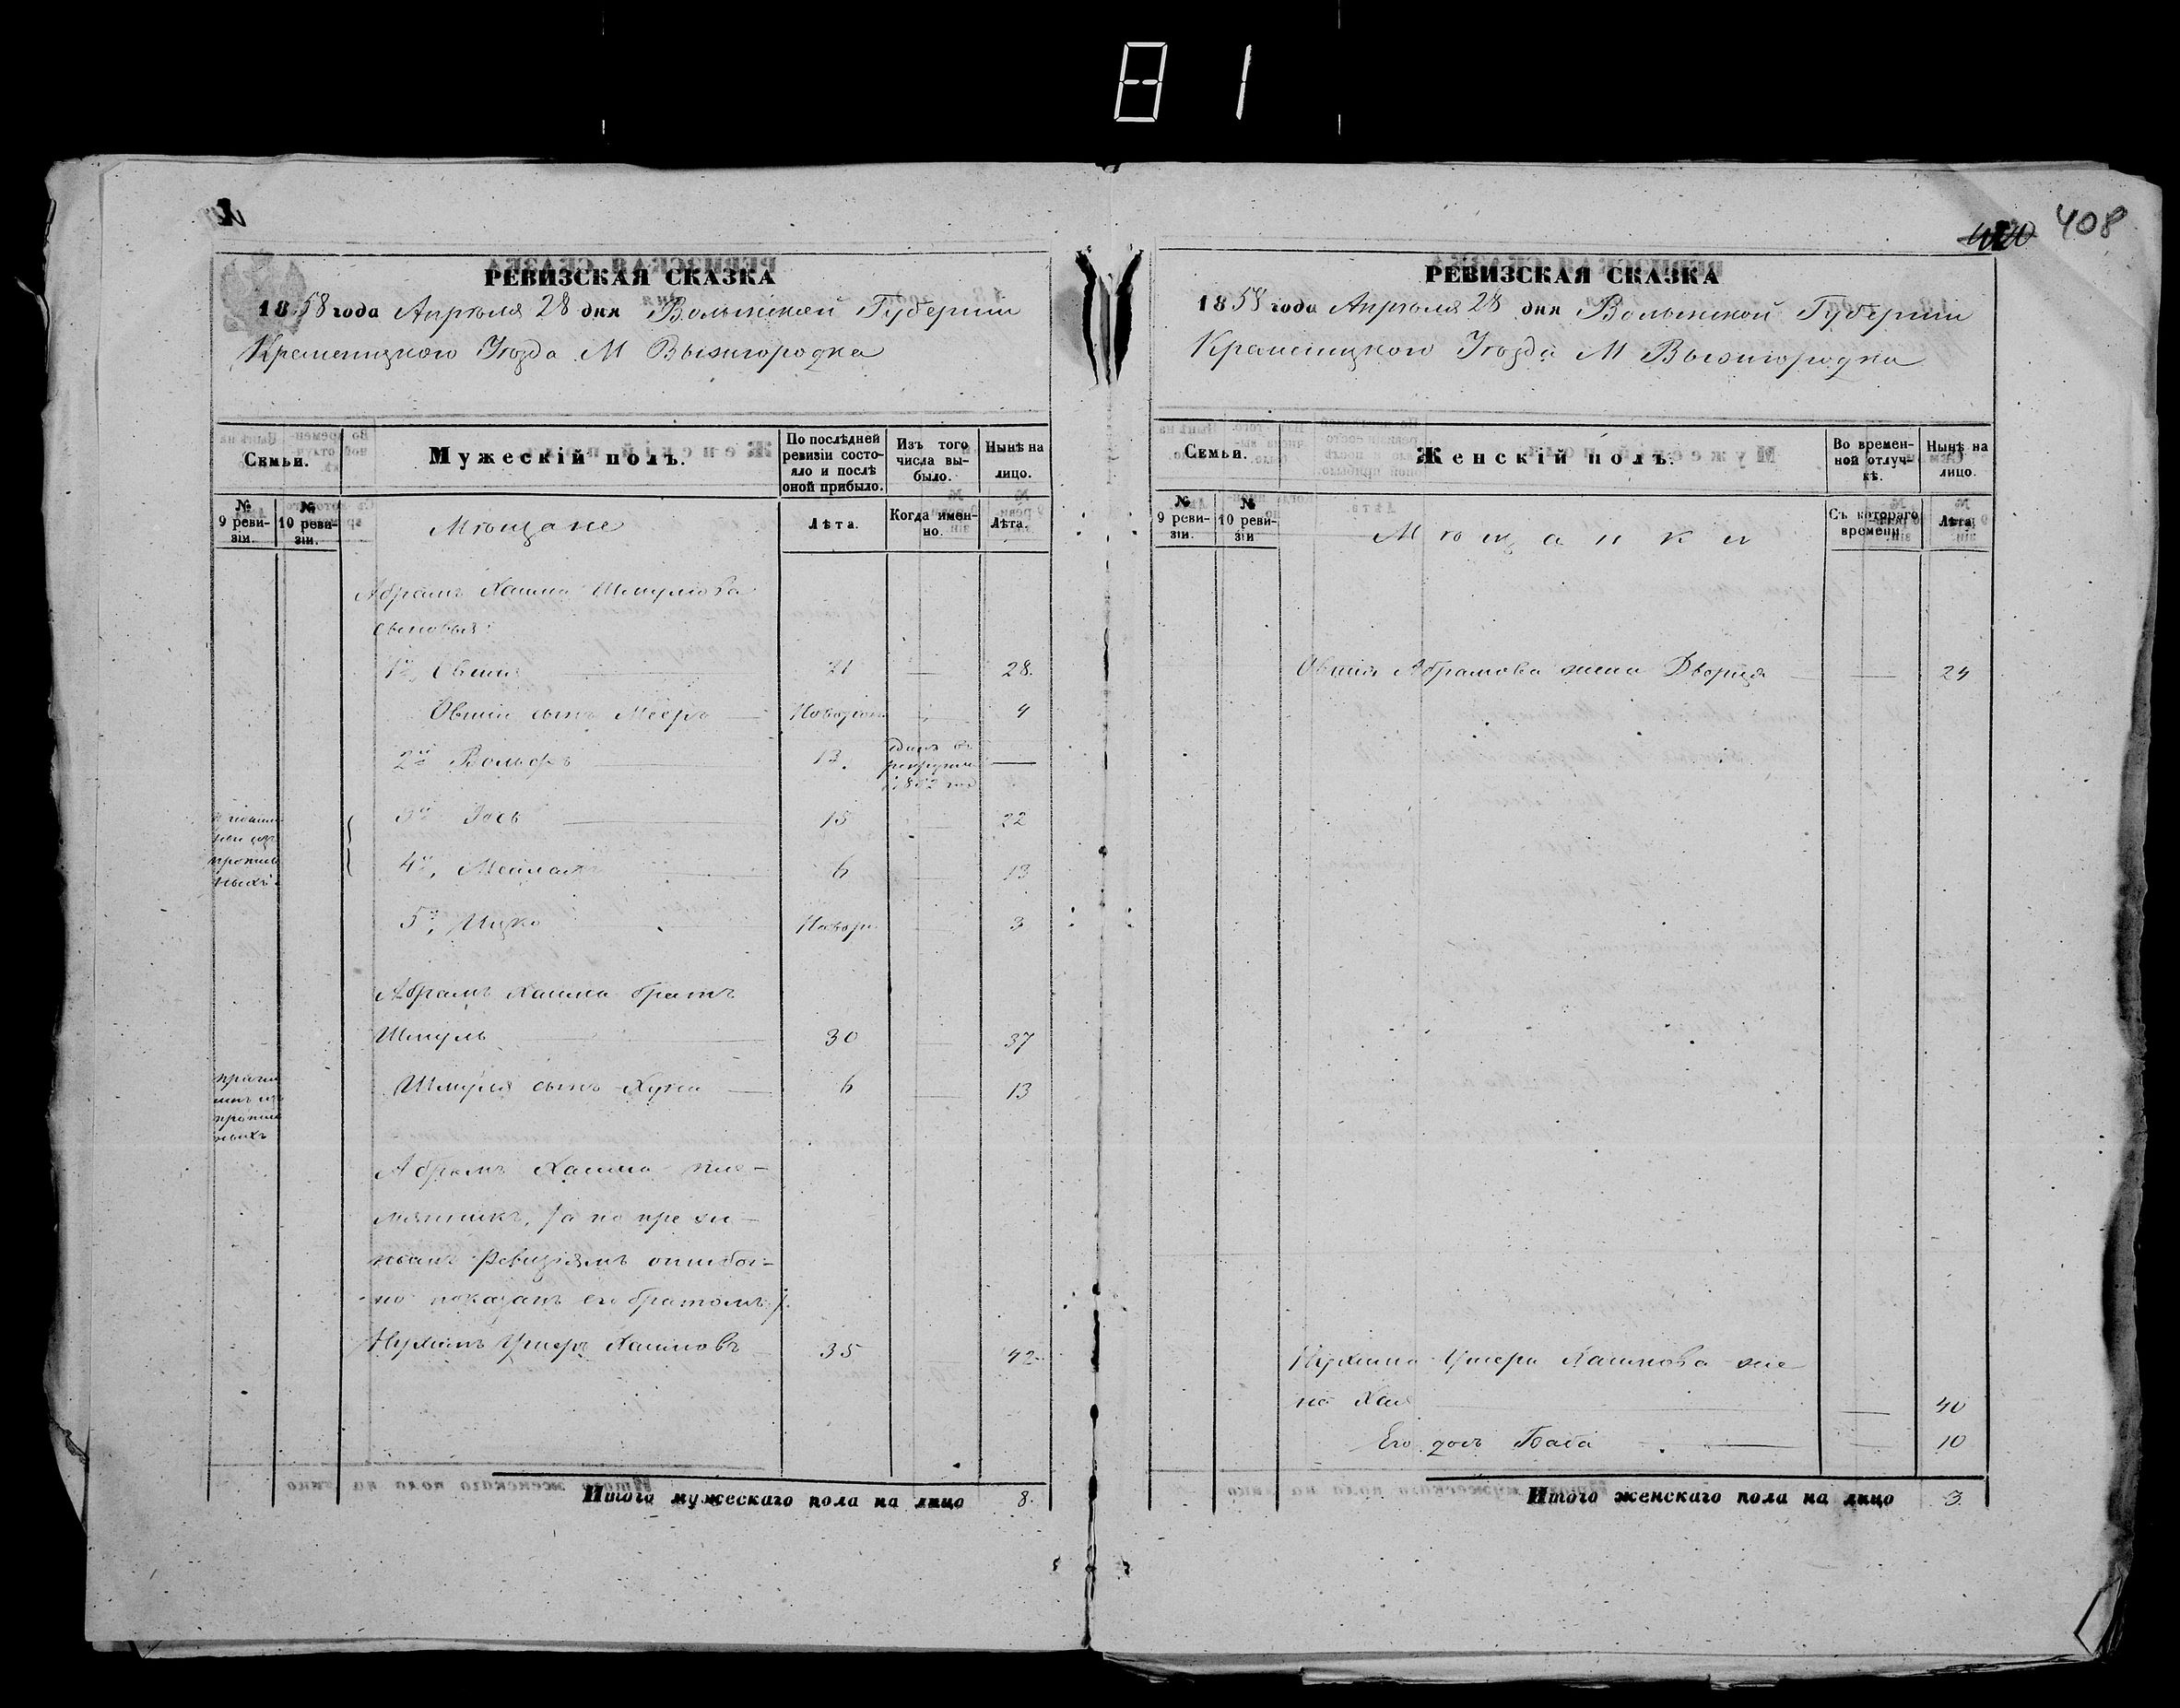 81
408
РЕВИЗСКАЯ СКАЗКА
1858 года Апрѣля 28 дня Волынской Губерніи
Кременецкого Уѣзда М Вышгородка
Семьи.
Мужескій полъ.
По послѣдней ревизіи состояло и послѣ оной прибыло.
Изъ того числа выбыло.
Нынѣ на лицо.
№ 9 ревизіи.
№ 10 ревизіи.
Мѣщане
Лѣта.
Когда именно.
Лѣта.
Абрамъ Хаима Шмулюва
сыновья:
1й, Овшия 21 — 28.
Овшіи сынъ Мееръ Новорож — 4
2й Вольфъ 13. рекруты 1852 —
3й Іосъ 15 22
4й, Мейлахъ 6 13
5й, Ицко Новор. 3
Абрамъ Хаима братъ
Шмуль 30 37
Шмуля сынъ 6 13
пропис
ныхъ
Абрамъ Хаима пле-
мянникъ, /а по преж
нымъ Ревизіямъ ошибоч-
но показанъ его братомъ/.
Нухимъ Ушеръ Хаимовъ 35 42
Итого мужескаго пола на лицо 8.
РЕВИЗСКАЯ СКАЗКА
1858 года Апрѣля 28 дня Волынской Губерніи
Кременецкого Уѣзда М Вышгородка
Семьи.
Женскій полъ.
Во временной отлучкѣ.
Нынѣ на лицо.
№ 9 ревизіи.
№ 10 ревизіи
Мѣщанки
Съ котораго времени
Лѣта
Овшія Абрамова жена Двойра — 24
Нухима Ушера Хаимова же
на Хая — 40
Его дочь Баба — 10
Итого женскаго пола на лицо 3.